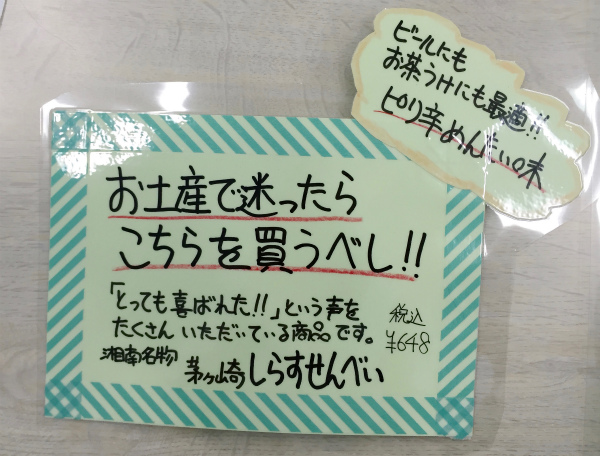 ビールにも
お茶うけにも最適!!
ピリ辛めんたい味
お土産で迷ったら
こちらを買うべし!!
「とっても喜ばれた!!」という声を
たくさんいただいている商品です。
税込
¥648
湘南名物 茅ヶ崎しらすせんべい